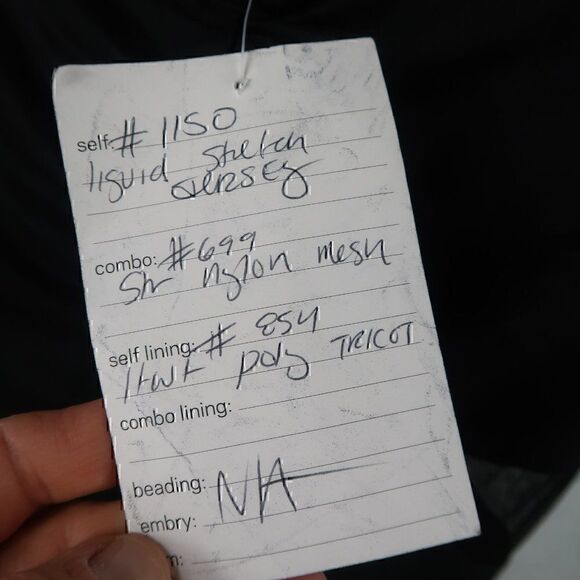 self: #1150
liquid stretch
JERSEY
combo: #699
Str nylon mesh
self lining: # 854
ltwt poly TRICOT
combo lining:
beading: N/A
embry:
m: